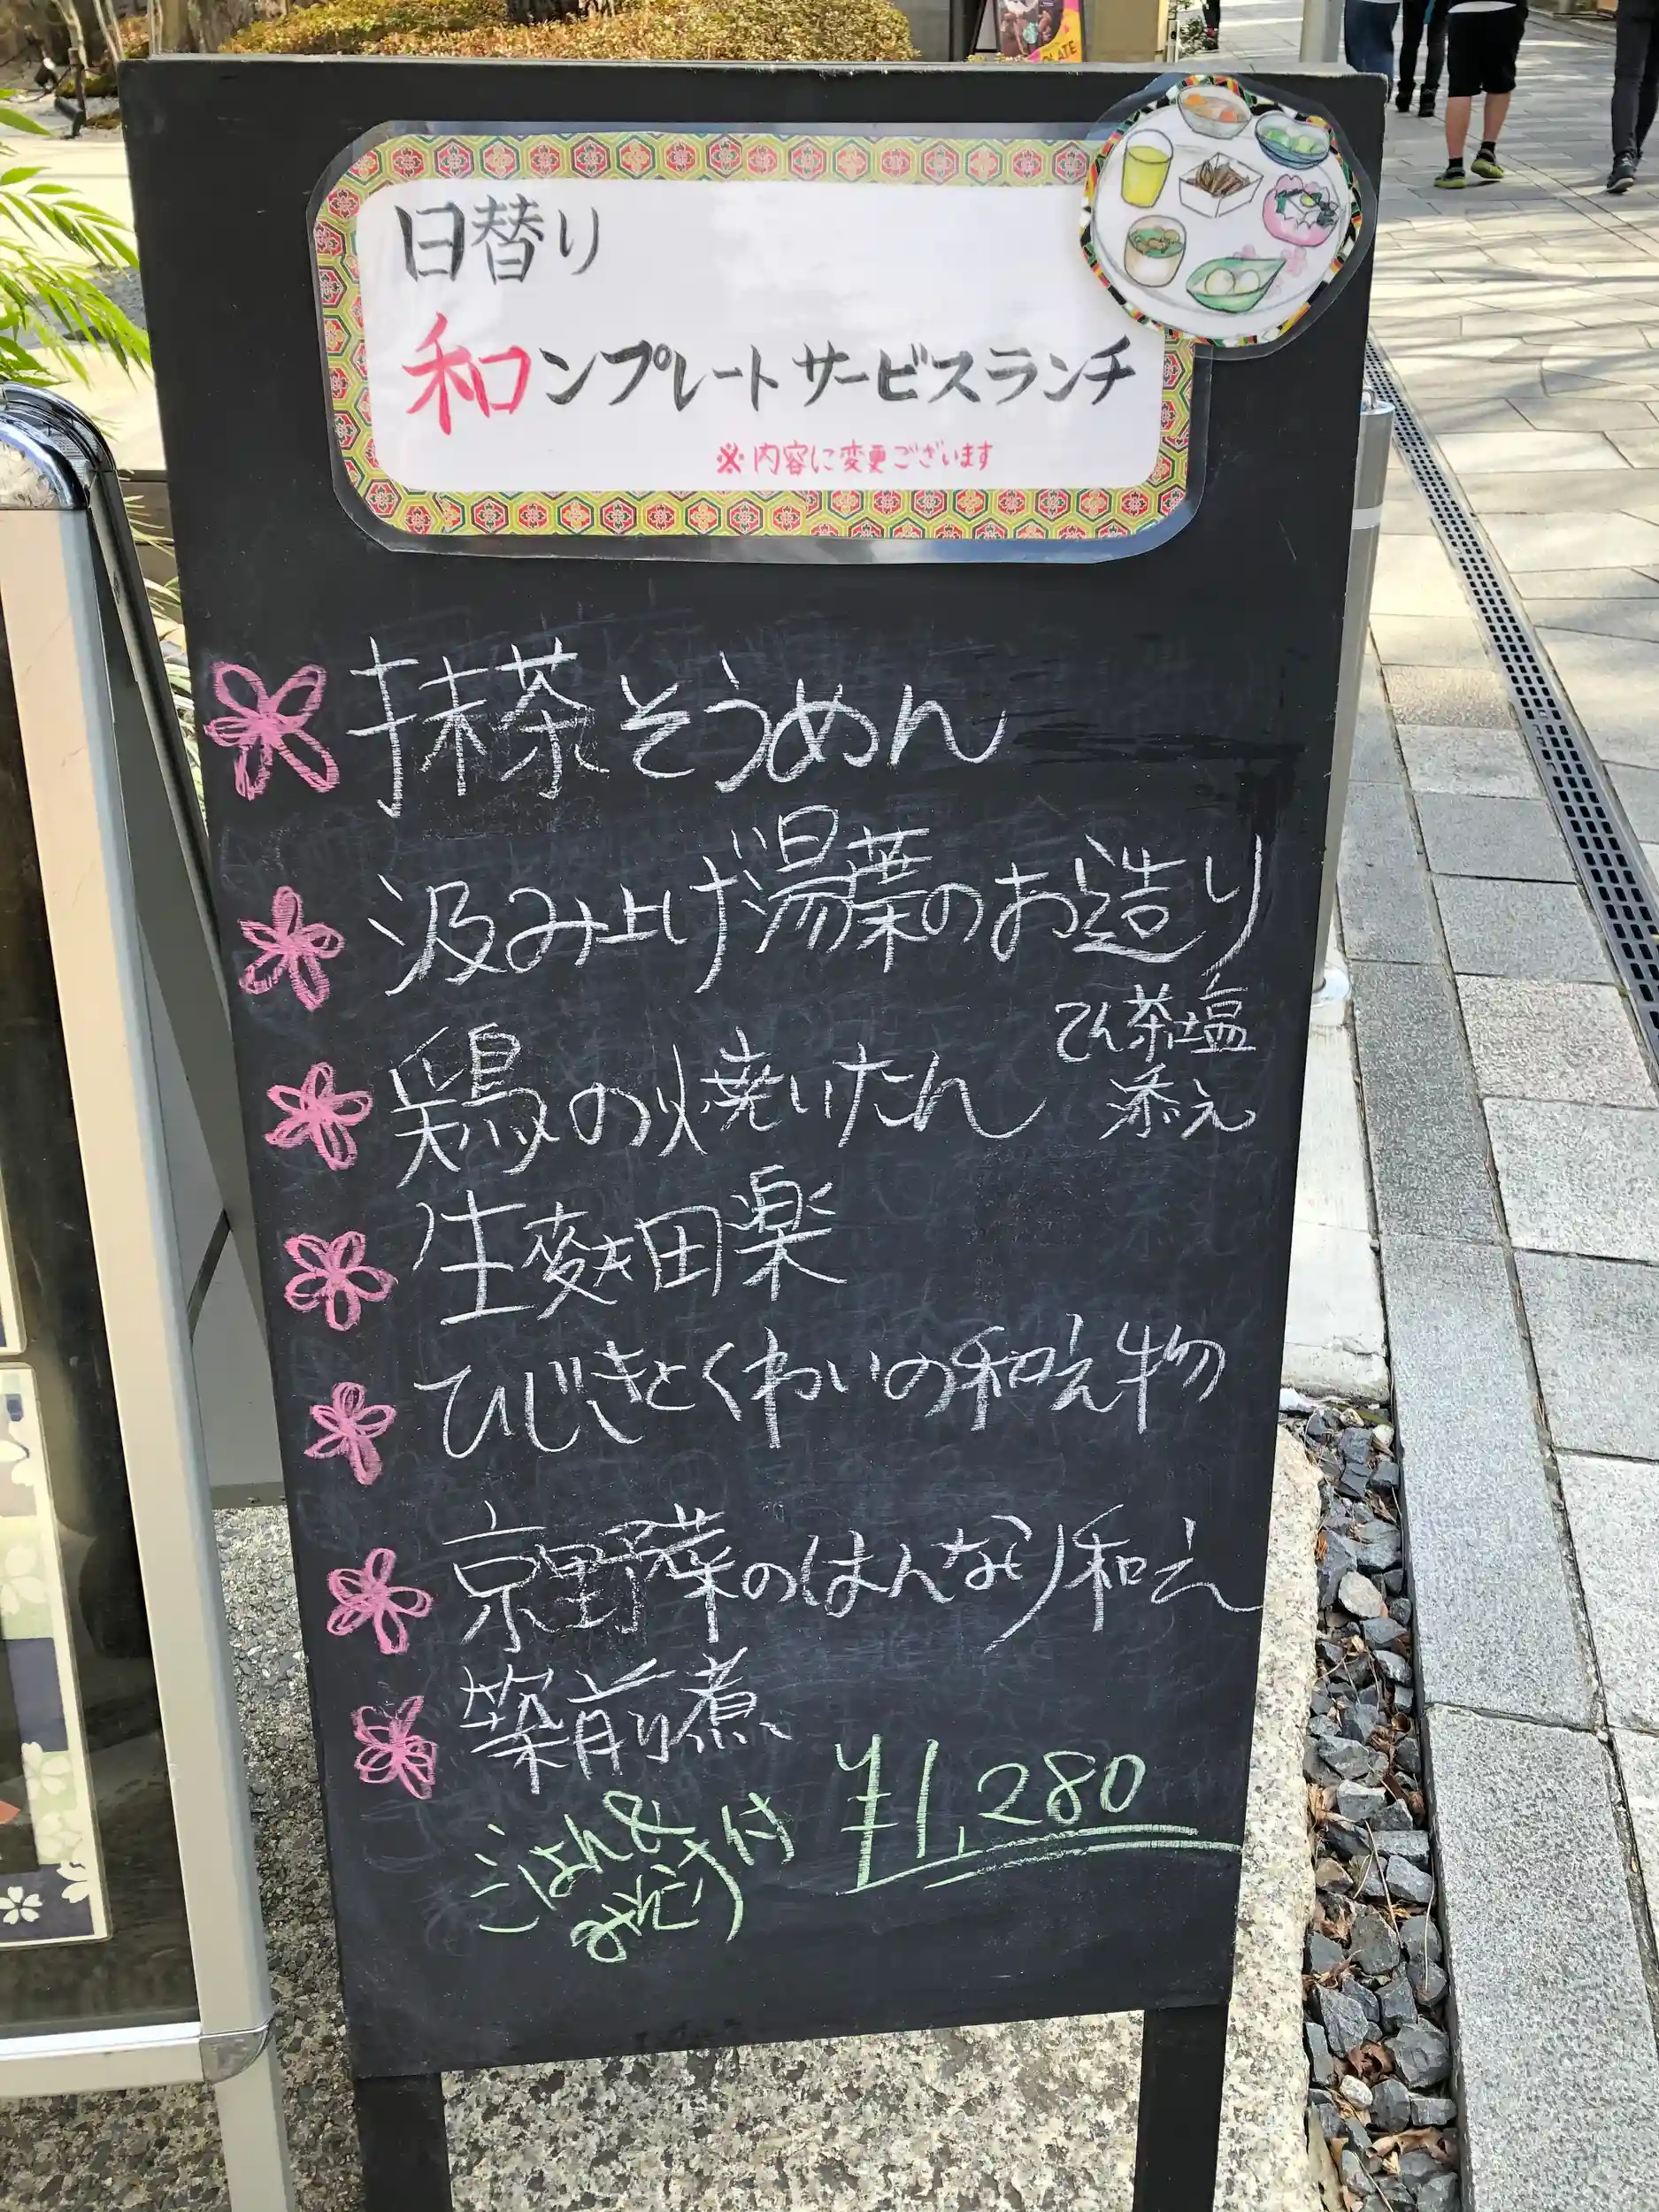 日替り
和コンプレートサービスランチ
※内容に変更ございます
抹茶そうめん
汲み上げ湯葉のお造り
てん茶塩
添え
鶏の焼いたん
生麩田楽
ひじきとくわいの和え物
京野菜のはんなり和え
築前煮
ごはん&
みそしる付
¥1,280